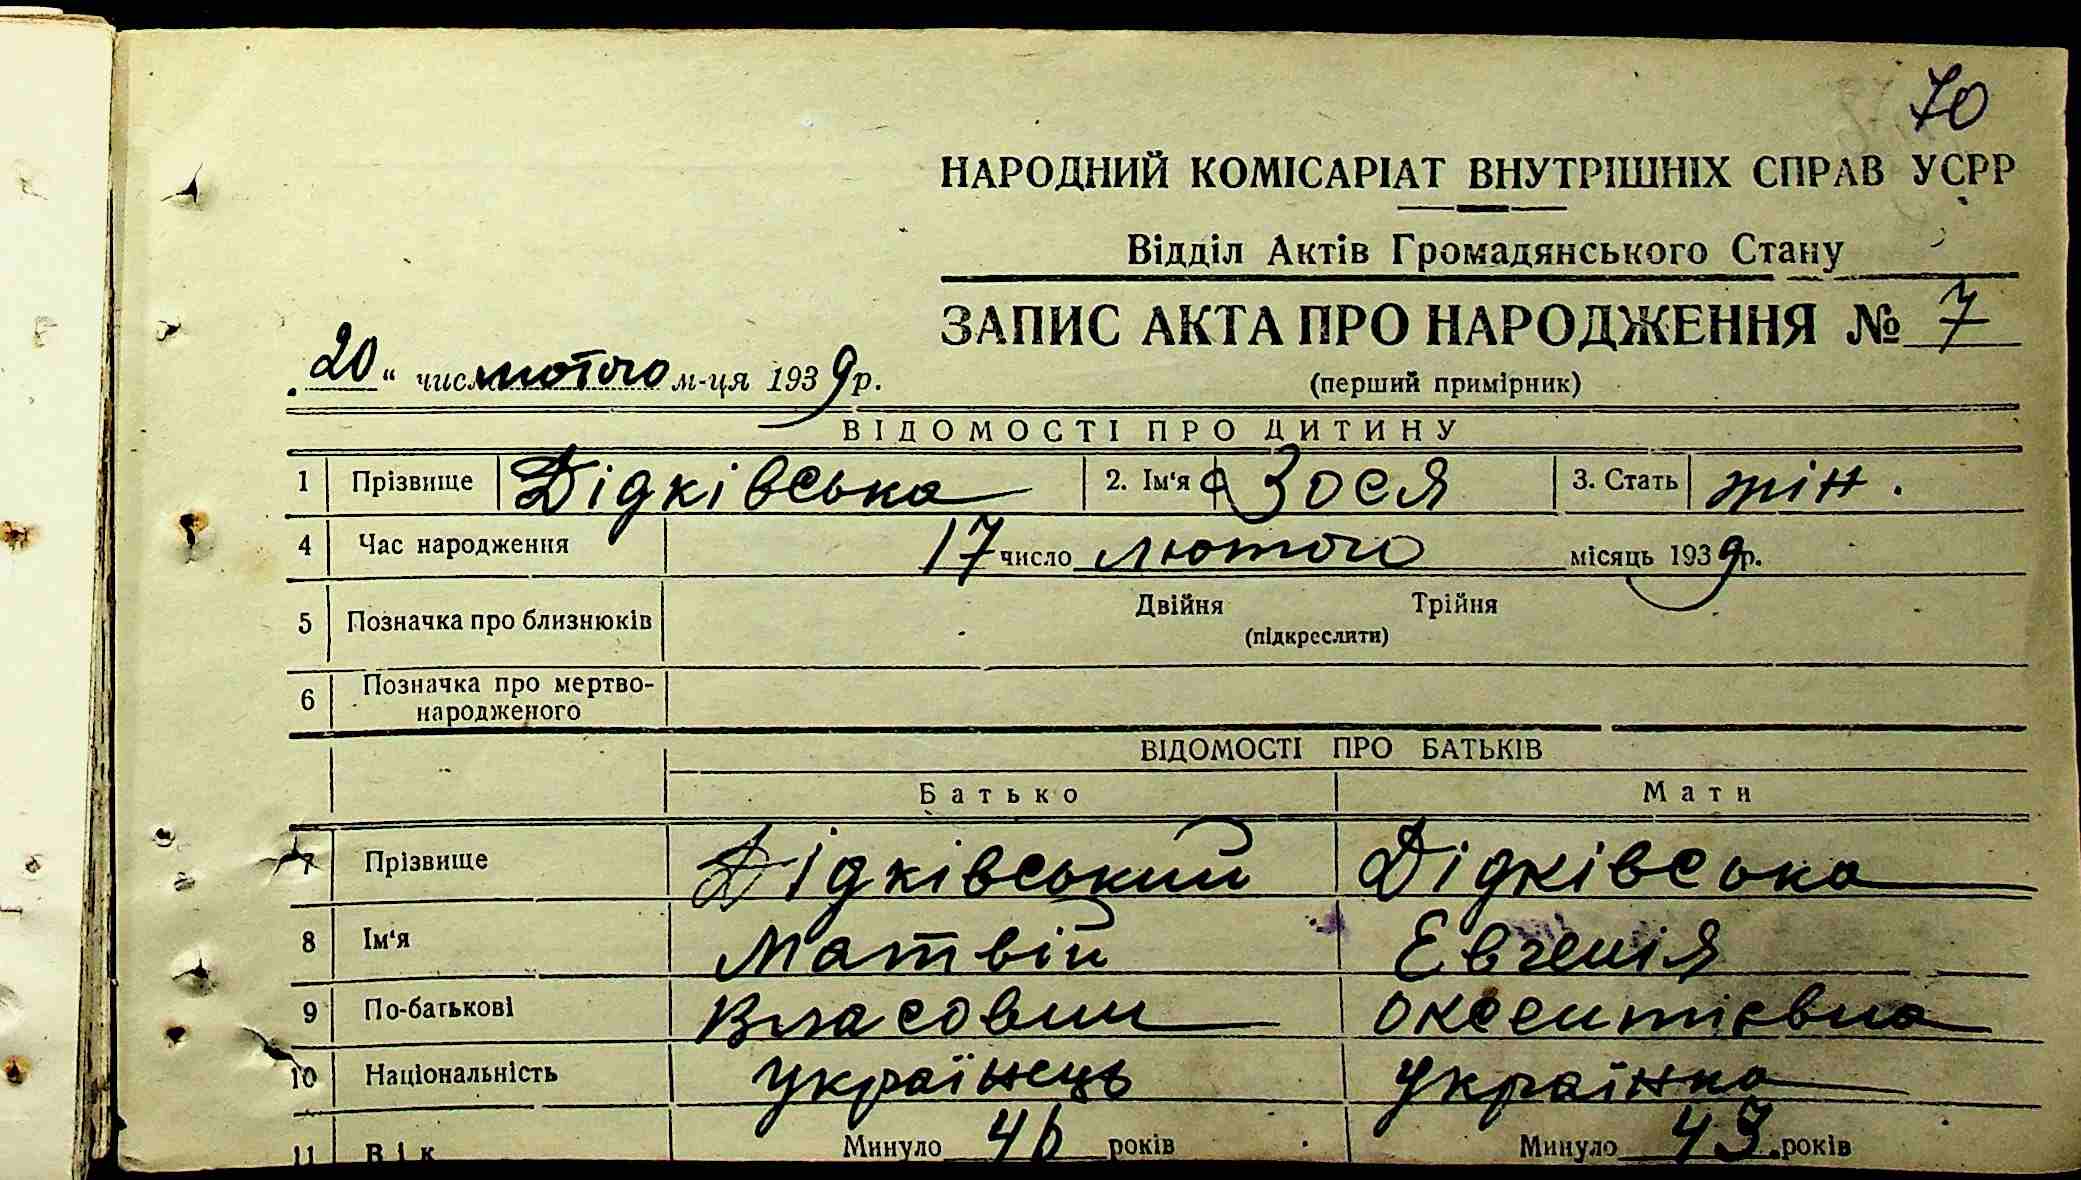 70
НАРОДНИЙ КОМІСАРІАТ ВНУТРІШНІХ СПРАВ УСРР
Відділ Актів Громадянського Стану
ЗАПИС АКТА ПРО НАРОДЖЕННЯ № 7
(перший примірник)
„20“ числ лютого м-ця 1939 р.
ВІДОМОСТІ ПРО ДИТИНУ
1 Прізвище Дідківська 2. Ім'я Зося 3. Стать жін.
4 Час народження 17 число лютого місяць 1939 р.
5 Позначка про близнюків Двійня Трійня
(підкреслити)
6 Позначка про мертво-
народженого
ВІДОМОСТІ ПРО БАТЬКІВ
Батько Мати
7 Прізвище Дідківський Дідківська
8 Ім'я Матвій Евгенія
9 По-батькові Власович Оксентієвна
10 Національність українець українка
11 Вік Минуло 46 років Минуло 43 років